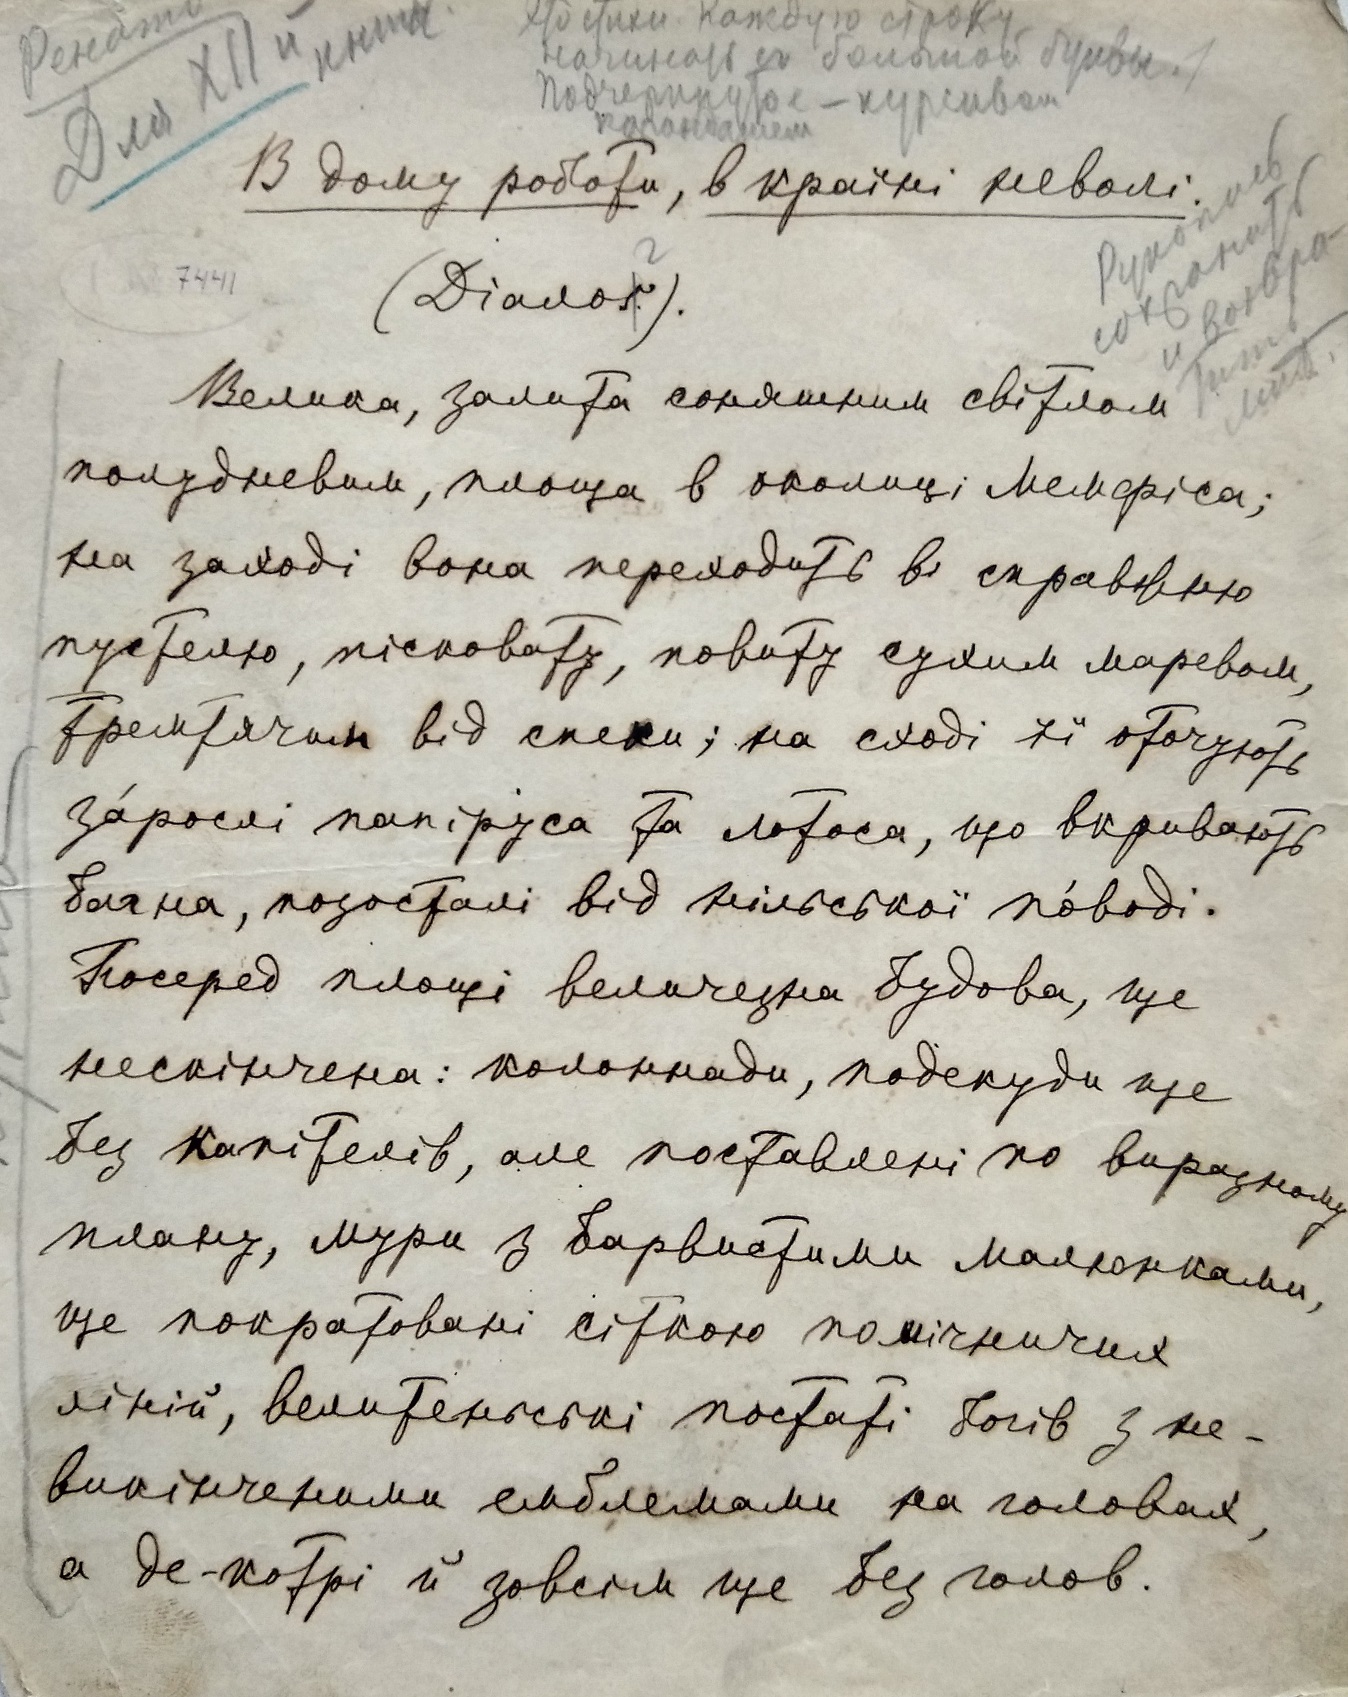 Для XII й книж.
каждую строку
начинать с большой буквы.
Подчеркнутое – курсивом
В дому роботи, в країні неволі.
7441
(Діалог).
Рукопись
сохранить
и возвра-
тить
Велика, залита соняшним світлом
полудневим, площа в околиці Мемфіса;
на заході вона переходить в справжню
пустелю, пісковату, повиту сухим маревом,
тремтячим від спеки; на сході її оточують
за́рослі папіруса та лотоса, що вкривають
багна, позосталі від нільської по́воді.
Посеред площі величезна будова, ще
нескінчена: колоннади, подекуди ще
без капітелів, але поставлені по виразному
плану, мури з барвистими малюнками,
ще пократовані сіткою помічничих
ліній, велитенські постаті богів з не-
викінченими емблемами на головах,
а де-котрі й зовсім ще без голов.